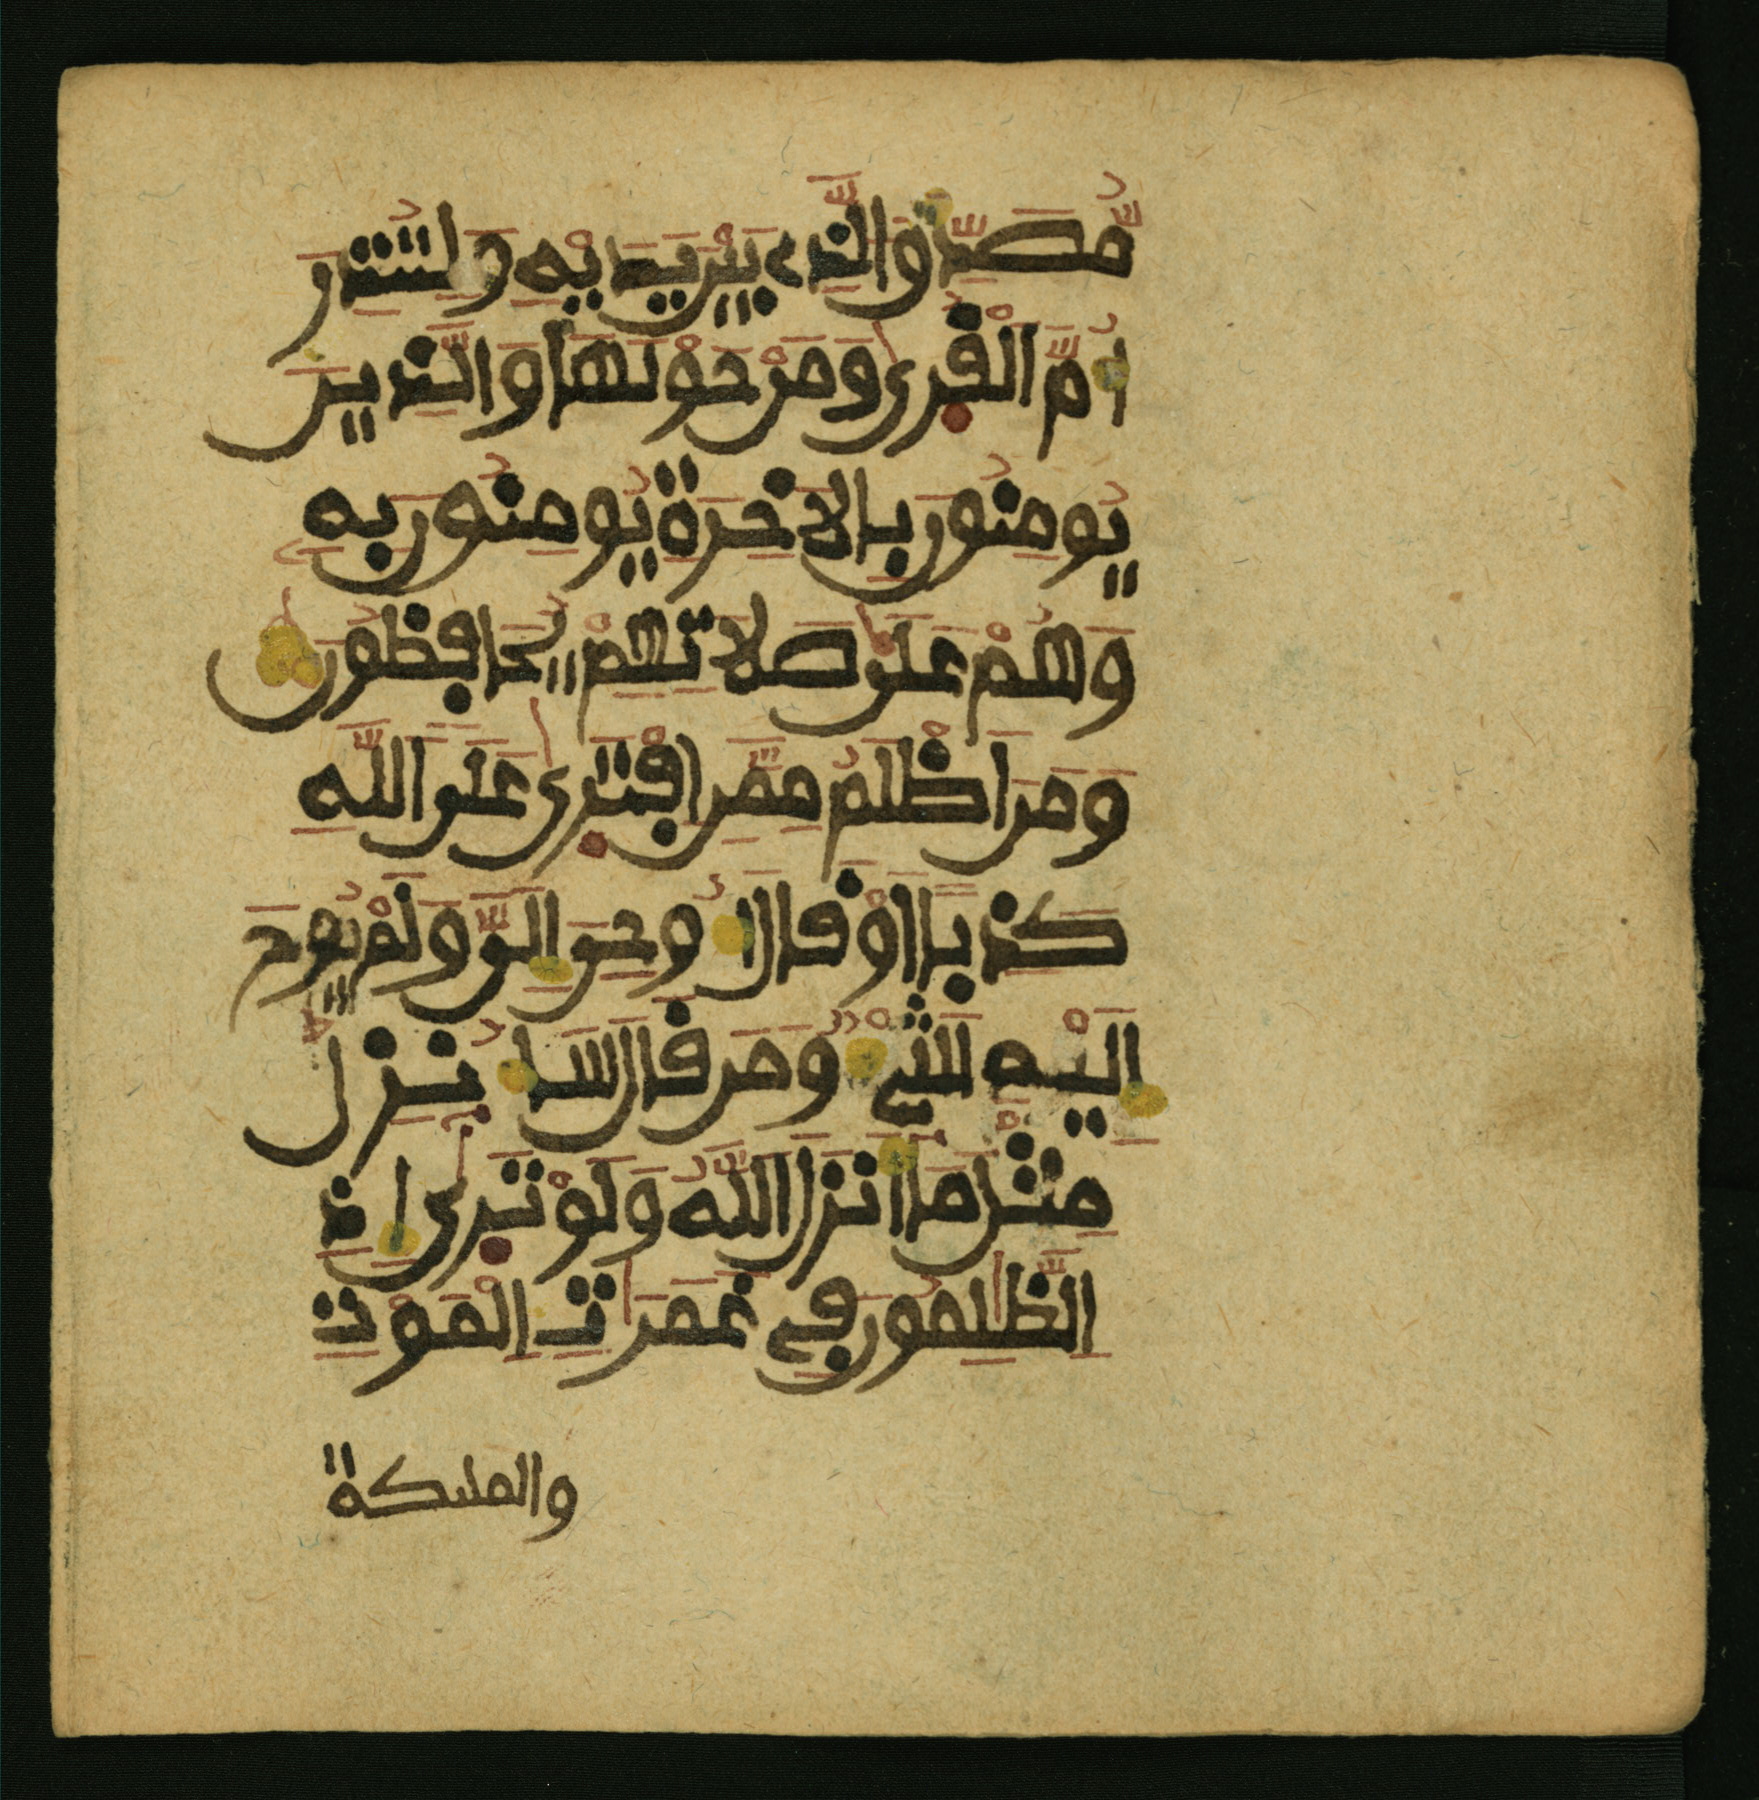 مُّصَدِّقُ الَّذِي بَيْنَ يَدَيْهِ وَلِتُنذِرَ
أُمَّ الْقُرَىٰ وَمَنْ حَوْلَهَا وَالَّذِينَ
يُومِنُونَ بِالَاخِرَةِ يُومِنُونَ بِهِ
وَهُمْ عَلَىٰ صَلَاتِهِمْ يُحَافِظُونَ
وَمَنَ اَظْلَمُ مِمَّنِ افْتَرَىٰ عَلَى اللَّهِ
كَذِباً اَوْ قَالَ أُوحِيَ إِلَيَّ وَلَمْ يُوحَ
إِلَيْهِ شَيْءٌ وَمَن قَالَ سَأُنزِلُ
مِثْلَ مَا أَنزَلَ اللَّهُ وَلَوْ تَرَىٰ إِذِ
الظَّٰلِمُونَ فِي غَمَرَٰتِ الْمَوْتِ
والملىكة